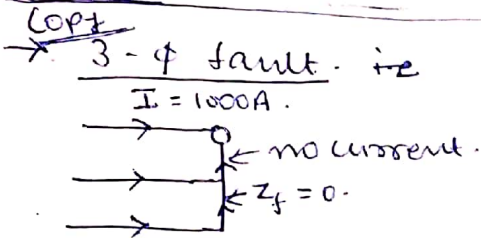 Copy
→ 3-ϕ fault. ie
I = 1000A.
← no current.
← Z_f = 0.